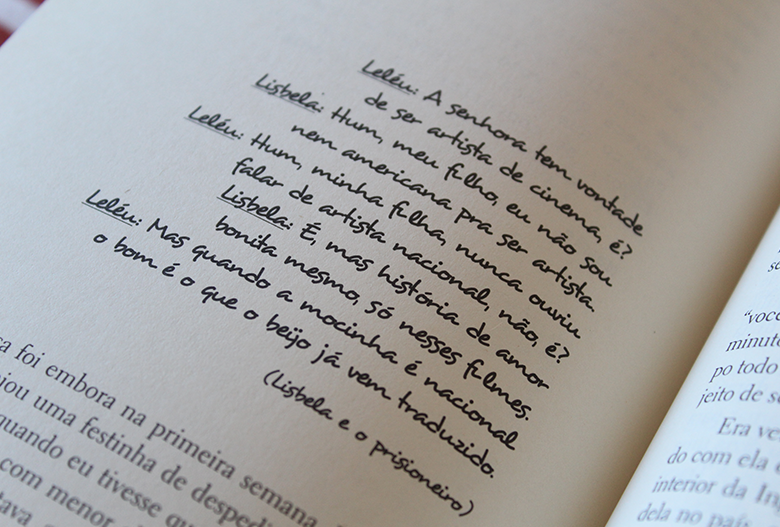 Leléu: A senhora tem vontade
de ser artista de cinema, é?
Lisbela: Hum, meu filho, eu não sou
nem americana pra ser artista.
Leléu: Hum, minha filha, nunca ouviu
falar de artista nacional, não, é?
Lisbela: É, mas história de amor
bonita mesmo, só nesses filmes.
Leléu: Mas quando a mocinha é nacional
o bom é o que o beijo já vem traduzido.
(Lisbela e o prisioneiro)
foi embora na primeira semana.
uma festinha de
quando eu tivesse
com menor
"você
minuto
po todo
jeito de
Era
do com ela
interior da
dela no país